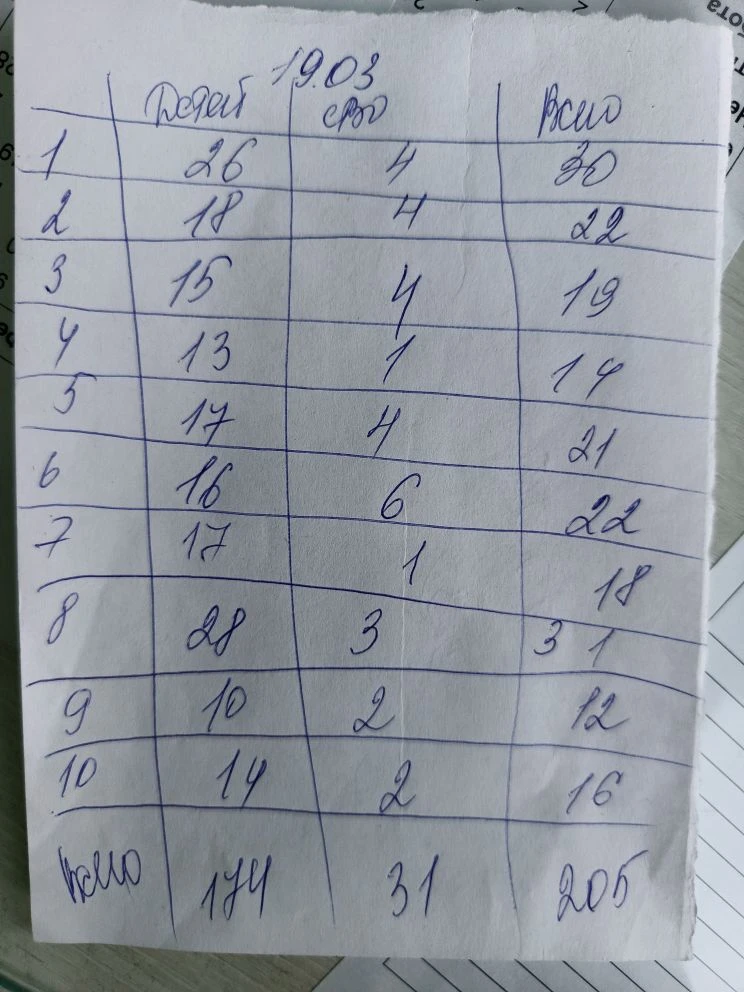 19.03
Детей СВО Всего
1 26 4 30
2 18 4 22
3 15 4 19
4 13 1 14
5 17 4 21
6 16 6 22
7 17 1 18
8 28 3 31
9 10 2 12
10 14 2 16
Всего 174 31 205